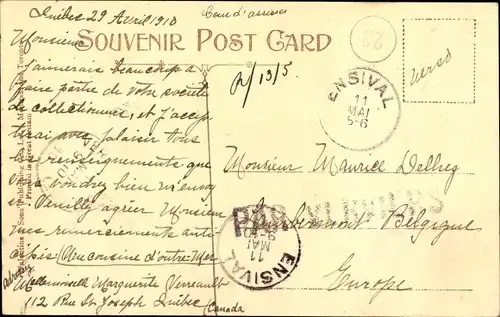 Québec 29 Avril 1910
SOUVENIR POST CARD
Monsieur
J'aimerais beaucoup a
faire partie de votre société
de collectionneur, et j'accep
terai avec plaisir tous
les renseignements que
vous voudrez bien m'en
voyer. Veuillez agréer Monsieur
mes remerciements anti-
cipés (Une cousine d'outre-Mer
Mademoiselle Marguerite Verreault
112 Rue St Joseph Québec
(Canada
R/13/5
ENSIVAL
11
MAI
5-6
Verso
Monsieur Maurice Delheg
Belgique
Europe
PAR VERVIERS
ENSIVAL
11
MAI